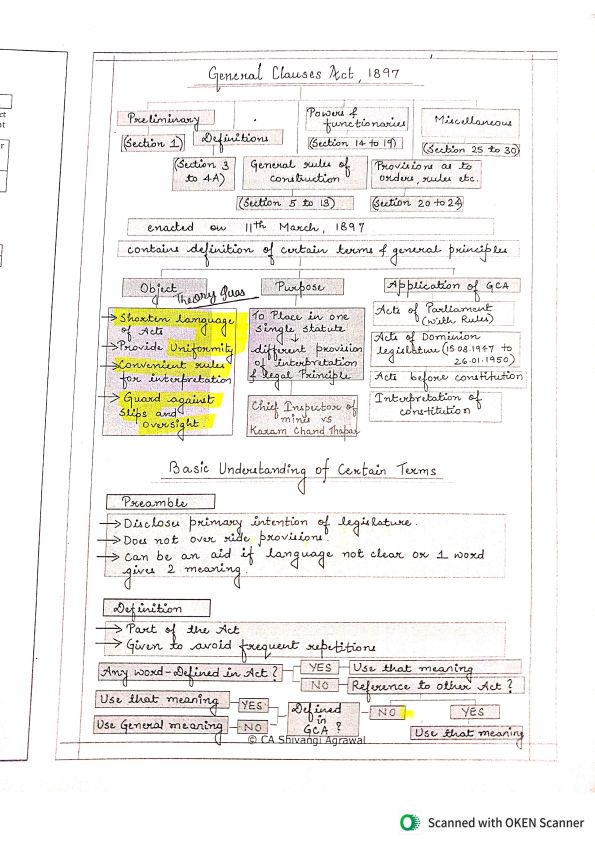 General Clauses Act, 1897
Preliminary
(Section 1)
Definitions
(Section 3
to 4A)
General rules of
construction
(Section 5 to 13)
Powers &
functionaries
(Section 14 to 19)
Provisions as to
orders, rules etc.
(Section 20 to 24)
Miscellaneous
(Section 25 to 30)
enacted on 11th March, 1897
contains definition of certain terms & general principles
Object
Theory Ques
→ Shorten language
of Acts
→ Provide Uniformity
→ Convenient rules
for interpretation
→ Guard against
Slips and
Oversight.
Purpose
To Place in one
single statute
↓
different provision
of interpretation
& legal Principle
Chief Inspector of
mines vs
Karam Chand Thapar
Application of GCA
Acts of Parliament
(With Rules)
Acts of Dominion
legislature (15.08.1947 to
26.01.1950)
Acts before constitution
Interpretation of
constitution
Basic Understanding of Certain Terms
Preamble
→ Discloses primary intention of legislature.
→ Does not over ride provisions.
→ Can be an aid if language not clear or 1 word
gives 2 meaning.
Definition
→ Part of the Act
→ Given to avoid frequent repetitions
Any word-Defined in Act?
YES
Use that meaning
NO
Reference to other Act?
NO
YES
Use that meaning
Defined
in
GCA?
YES
Use that meaning
NO
Use General meaning
© CA Shivangi Agrawal
Scanned with OKEN Scanner